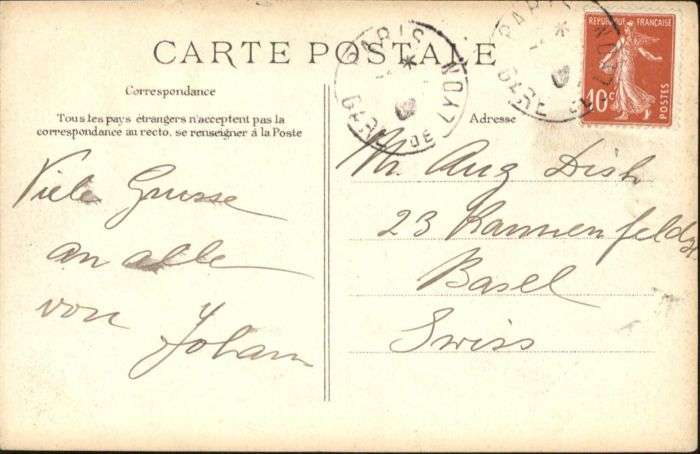 CARTE POSTALE
Correspondance
Tous les pays étrangers n'acceptent pas la
correspondance au recto. se renseigner à la Poste
Viele Grusse
an alle
von Johann
Adresse
PARIS
GARE DE LYON
PARIS
GARE DE LYON
REPUBLIQUE FRANÇAISE
10c
POSTES
Mr. Aug Dish
23 Kannenfeldstr
Basel
Swiss